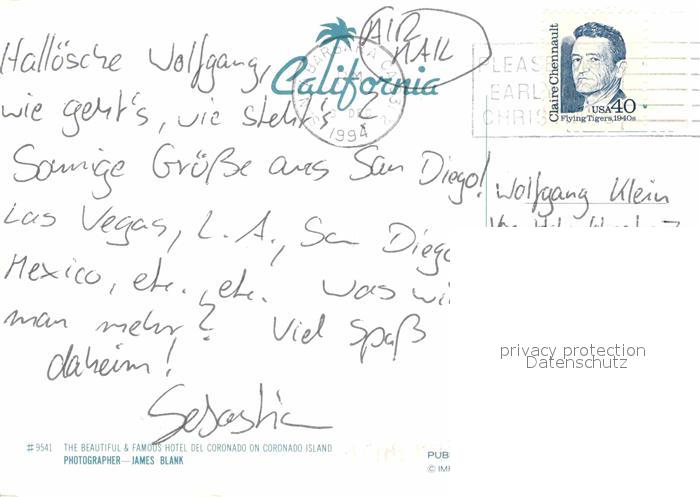 AIR
MAIL
California
Hallösche Wolfgang,
wie geht's, wie steht's?
Sonnige Größe aus San Diego!
Las Vegas, L.A., San Diego
Mexico, etc., etc. Was wi
man mehr? Viel Spaß
daheim!
Sebastian
SANTA BARBARA CA
PM
DEC
1994
PLEAS
EARL
CHRIS
Claire Chennault
USA 40
Flying Tigers, 1940s
Wolfgang Klein
privacy protection
Datenschutz
#9541 THE BEAUTIFUL & FAMOUS HOTEL DEL CORONADO ON CORONADO ISLAND.
PHOTOGRAPHER—JAMES BLANK
PUB
© IMP